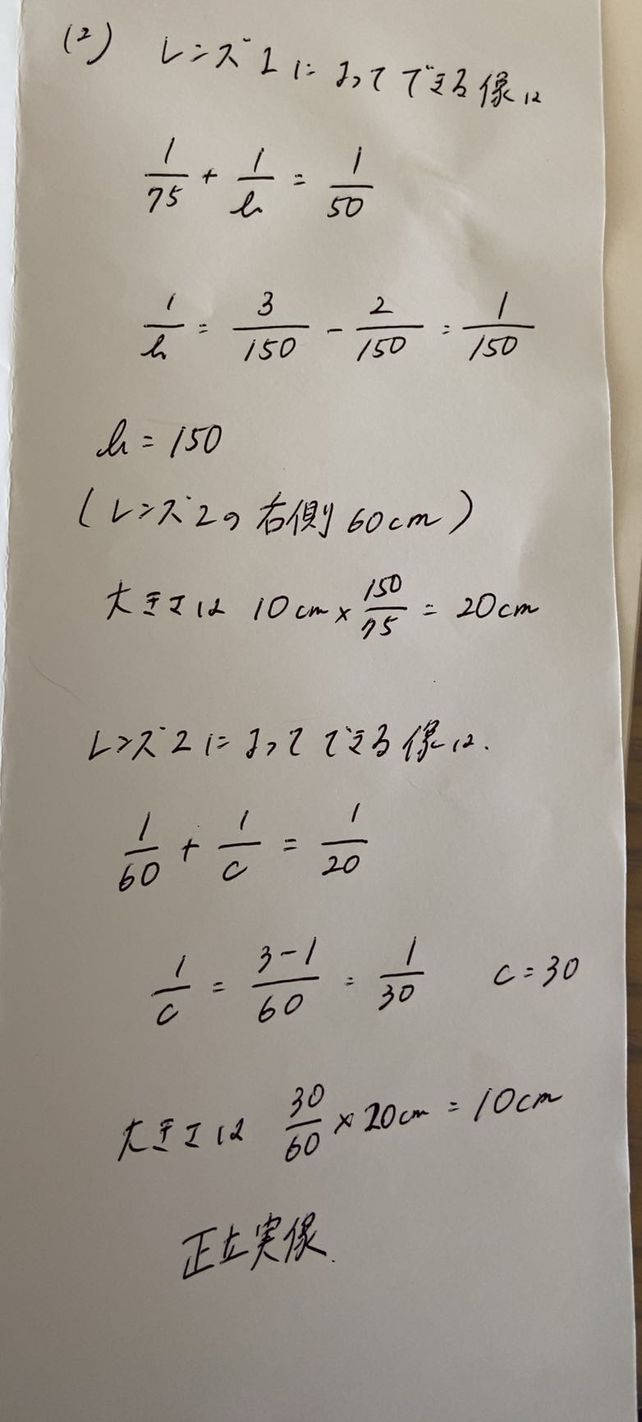 (2) レンズ1によってできる像は
1/75 + 1/b = 1/50
1/b = 3/150 - 2/150 = 1/150
b = 150
(レンズ2の右側60cm)
大きさは 10cm × 150/75 = 20cm
レンズ2によってできる像は.
1/60 + 1/c = 1/20
1/c = 3-1/60 = 1/30 c = 30
大きさは 30/60 × 20cm = 10cm
正立実像.